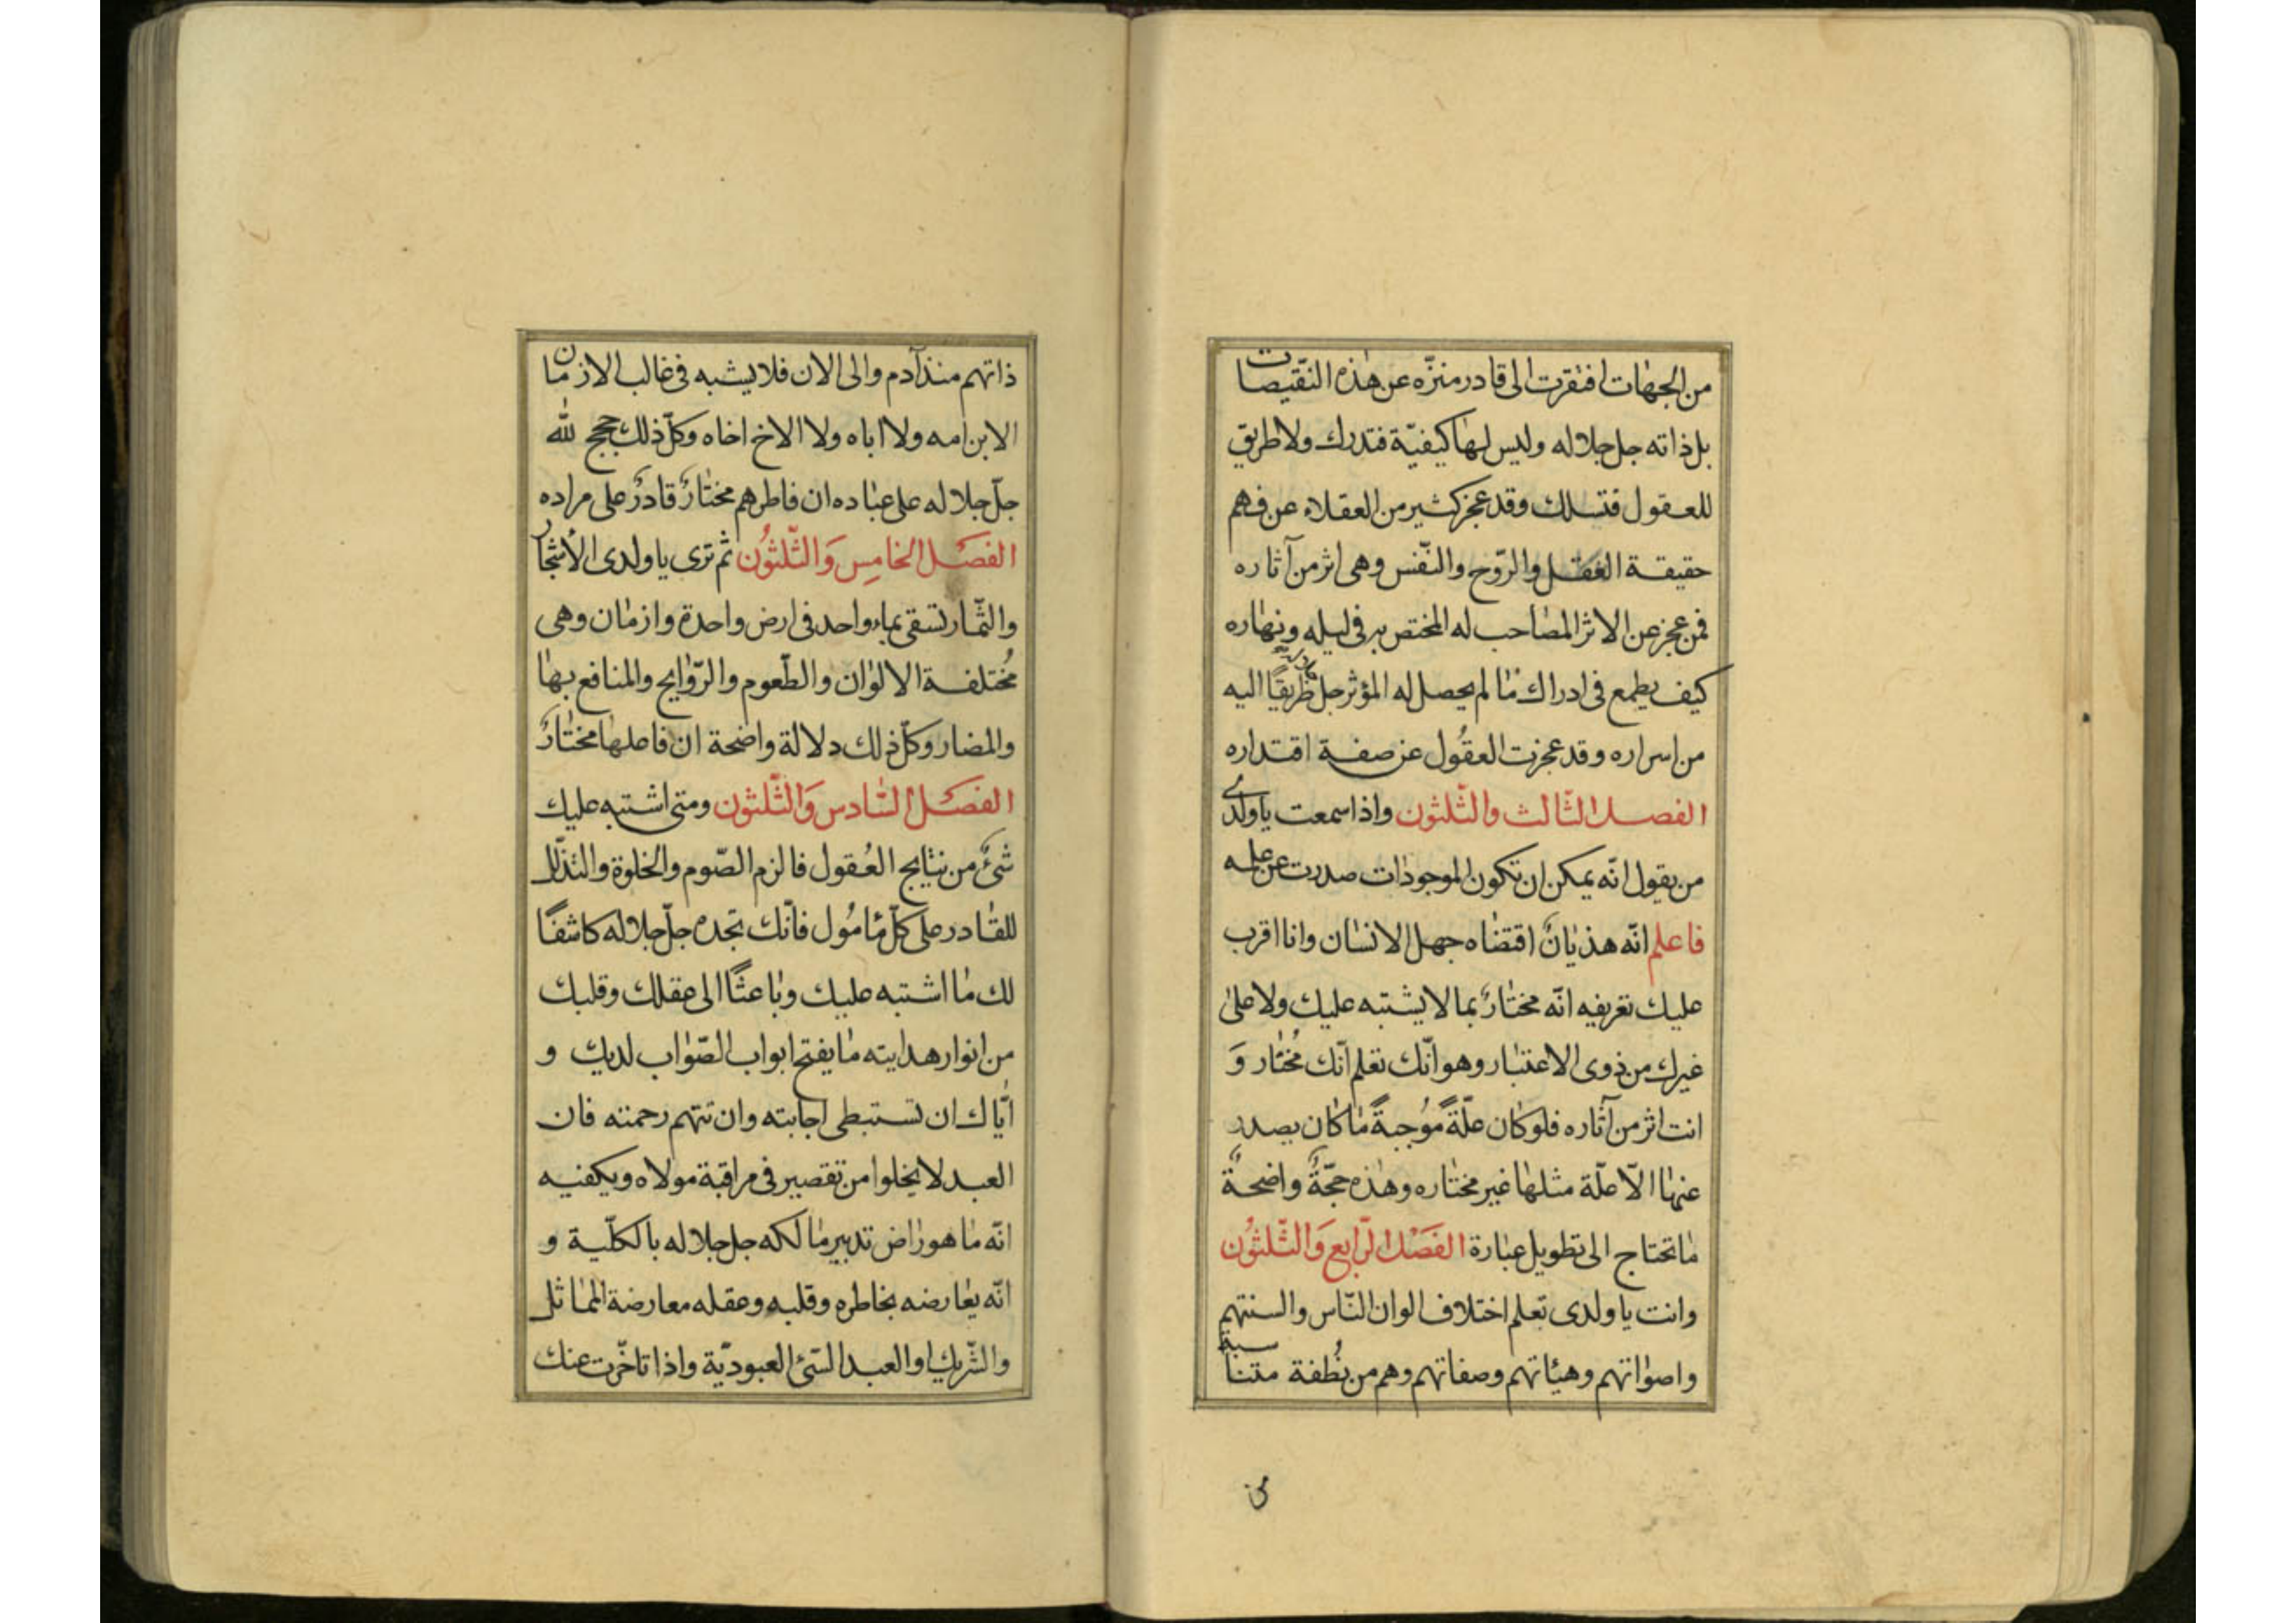 من الجهات افتقرت الى قادر منزّه عن هذه النقيصات
بل ذاته جل جلاله وليس لها كيفيّة فتدرك ولا طريق
للعقول فتسلك وقد عجز كثير من العقلاء عن فهم
حقيقة العقل والرّوح والنّفس وهى اثر من آثاره
فمن عجز عن الاثر المصاحب له المختص به فى ليله ونهاره
كيف يطمع فى ادراك ما لم يحصل له المؤثر جل طريقًا اليه
من اسراره وقد عجزت العقُول عن صفة اقتداره
الفصل الثّالث والثّلثون واذا سمعت ياولدى
من يقول انّه يمكن ان تكون الموجودات صدرت عن علّه
فاعلم انّه هذيانٌ اقتضاه جهل الانسان وانا اقرب
عليك تعريفه انّه مختارٌ بما لا يشتبه عليك ولا على
غيرك من ذوى الاعتبار وهو انّك تعلم انّك مُختار وَ
انت اثر من آثاره فلو كان علّةً مُوجبةً ما كان يصدر
عنها الّا علّة مثلها غير مختاره وهذه حجّةٌ واضحةٌ
ما تحتاج الى تطويل عبارة الفَصْل الرّابع وَالثّلثُون
وانت ياولدى تعلم اختلاف الوان النّاس والسنتهم
واصواتهم وهيئاتهم وصفاتهم وهم من نُطفة متناسبة
ذاتهم منذ آدم والى الان فلا يشبه فى غالب الازمان
الابن امه ولا اباه ولا الاخ اخاه وكلّ ذلك حجج لله
جلّ جلاله على عباده ان فاطرهم مختارٌ قادرٌ على مراده
الفصَل الخامِس وَالثّلثُون ثم ترى ياولدى الأشجار
والثّمار تسقى بماء واحد فى ارض واحدة وازمان وهى
مُختلفة الالوان والطّعوم والرّوايح والمنافع بها
والمضار وكلّ ذلك دلالة واضحة ان فاعلها مختارٌ
الفصَل السّادس وَالثّلثون ومتى اشتبه عليك
شئٌ من نتايج العُقول فالزم الصّوم والخلوة والتذلّل
للقادر على كلّ مامُول فانّك تجده جلّ جلاله كاشفًا
لك ما اشتبه عليك وباعثًا الى عقلك وقلبك
من انوار هدايته ما يفتح ابواب الصّواب لديك و
ايّاك ان تستبطى اجابته وان تتهم رحمته فان
العبد لا يخلوا من تقصير فى مراقبة مولاه ويكفيه
انّه ما هو راض تدبير مالكه جل جلاله بالكلّية و
انّه يعارضه بخاطره وقلبه وعقله معارضة المماثل
والشّريك او العبد السّئ العبوديّة واذا تاخّرت عنك